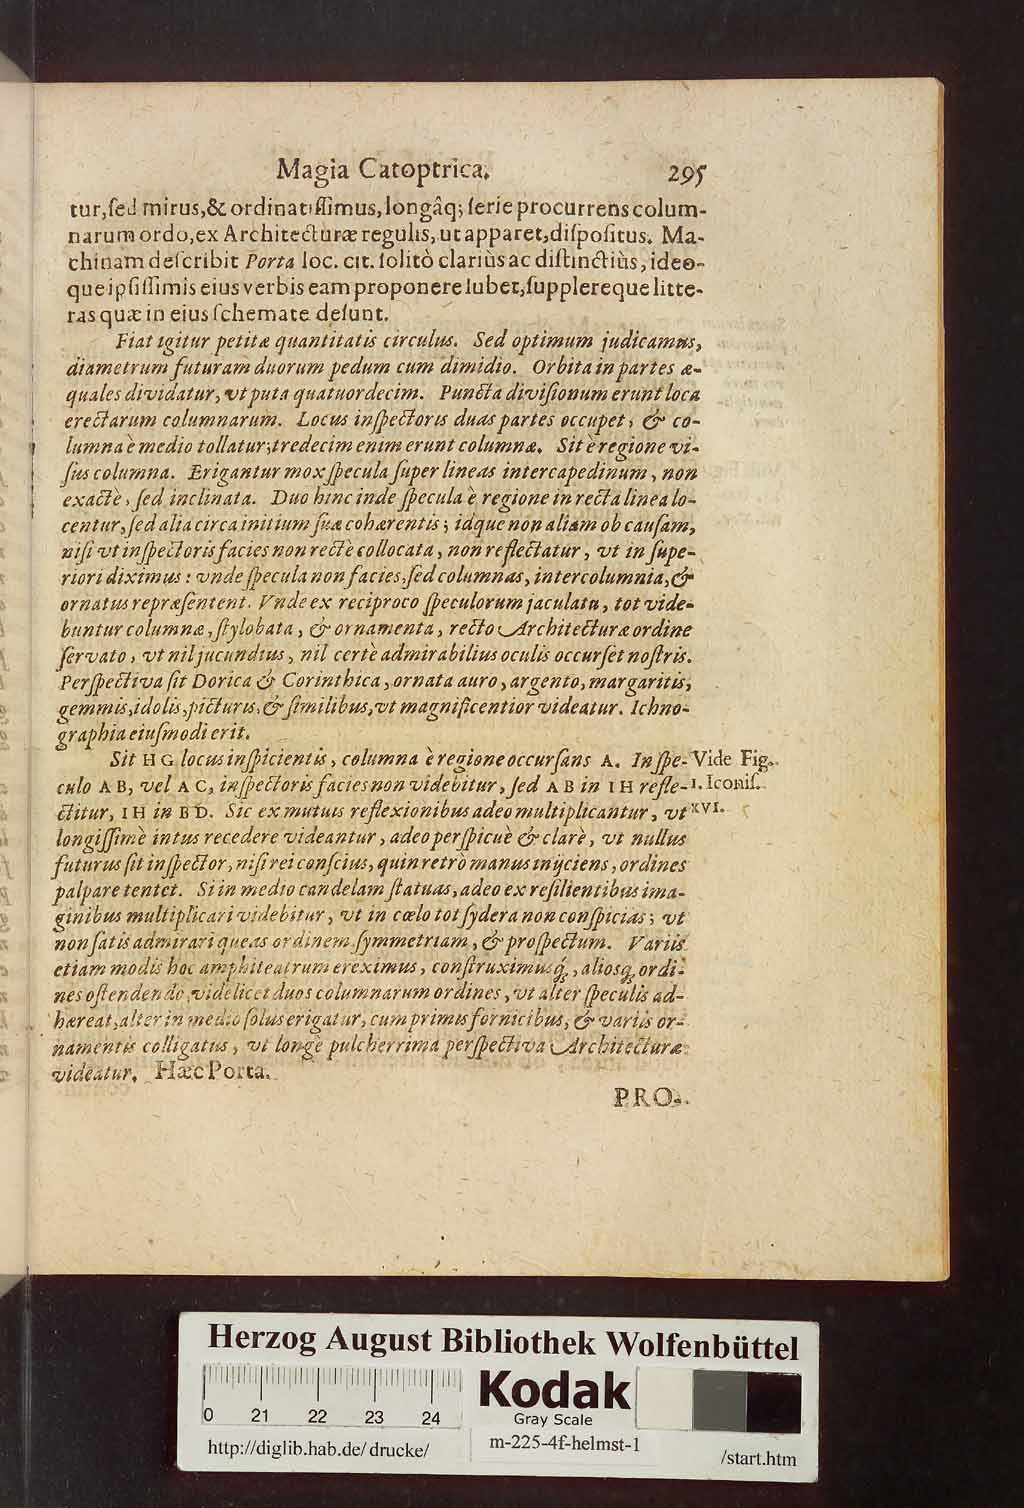 Magia Catoptrica. 295
tur, ſed mirus, & ordinatiſſimus, longâq; ſerie procurrens colum-
narum ordo, ex Architecturæ regulis, ut apparet, diſpoſitus. Ma-
chinam deſcribit Porta loc. cit. ſolitò clariùs ac diſtinctiùs, ideo-
que ipſiſſimis eius verbis eam proponere lubet, ſupplereque litte-
ras quæ in eius ſchemate deſunt.
Fiat igitur petitæ quantitatis circulus. Sed optimum judicamus,
diametrum futuram duorum pedum cum dimidio. Orbita in partes æ-
quales dividatur, vt puta quatuordecim. Puncta diviſionum erunt loca
erectarum columnarum. Locus inſpectoris duas partes occupet, & co-
lumna è medio tollatur; tredecim enim erunt columnæ. Sit è regione vi-
ſus columna. Erigantur mox ſpecula ſuper lineas intercapedinum, non
exactè, ſed inclinata. Duo hinc inde ſpecula è regione in recta linea lo-
centur, ſed alia circa initium ſuæ cohærentis; idque non aliam ob cauſam,
niſi vt inſpectoris facies non rectè collocata, non reflectatur, vt in ſupe-
riori diximus: vnde ſpecula non facies, ſed columnas, intercolumnia, &
ornatus repræſentent. Vnde ex reciproco ſpeculorum jaculatu, tot vide-
buntur columnæ, ſtylobata, & ornamenta, recto Architecturæ ordine
ſervato, vt nil jucundius, nil certè admirabilius oculis occurſet noſtris.
Perſpectiva ſit Dorica & Corinthica, ornata auro, argento, margaritis,
gemmis, idolis, picturis, & ſimilibus, vt magnificentior videatur. Ichno-
graphia eiuſmodi erit.
Sit HG locus inſpicientis, columna è regione occurſans A. In ſpe- Vide Fig.
culo AB, vel AC, inſpectoris facies non videbitur, ſed AB in IH refle- 1. Iconiſ.
ctitur, IH in BD. Sic ex mutuis reflexionibus adeo multiplicantur, vt XVI.
longiſſimè intus recedere videantur, adeo perſpicuè & clarè, vt nullus
futurus ſit inſpector, niſi rei conſcius, quin retrò manus injiciens, ordines
palpare tentet. Si in medio candelam ſtatuas, adeo ex reſilientibus ima-
ginibus multiplicari videbitur, vt in cœlo tot ſydera non conſpicias; vt
non ſatis admirari queas ordinem ſymmetriam, & proſpectum. Variis
etiam modis hoc amphiteatrum ereximus, conſtruximusq́, alioſq́ ordi-
nes oſtendendo, videlicet duos columnarum ordines, vt alter ſpeculis ad-
hæreat, alter in medio ſolus erigatur, cum primis fornicibus, & variis or-
namentis colligatus, vt longè pulcherrima perſpectiva Architecturæ
videatur. Hæc Porta.
PRO-
Herzog August Bibliothek Wolfenbüttel
0 21 22 23 24
Kodak
Gray Scale
http://diglib.hab.de/drucke/
m-225-4f-helmst-1
/start.htm